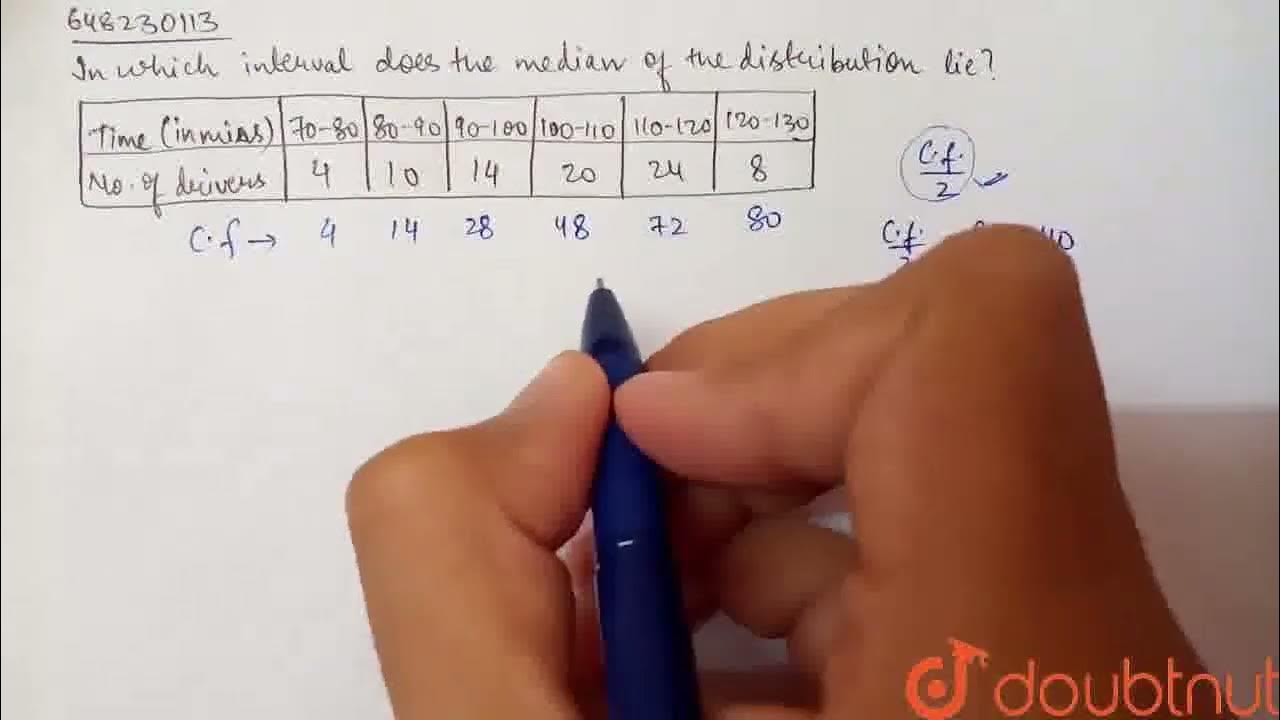 648230113
In which interval does the median of the distribution lie?
Time (in mins) 70-80 80-90 90-100 100-110 110-120 120-130
No. of drivers 4 10 14 20 24 8
C.f → 4 14 28 48 72 80
C.f.
2
C.f.
doubtnut